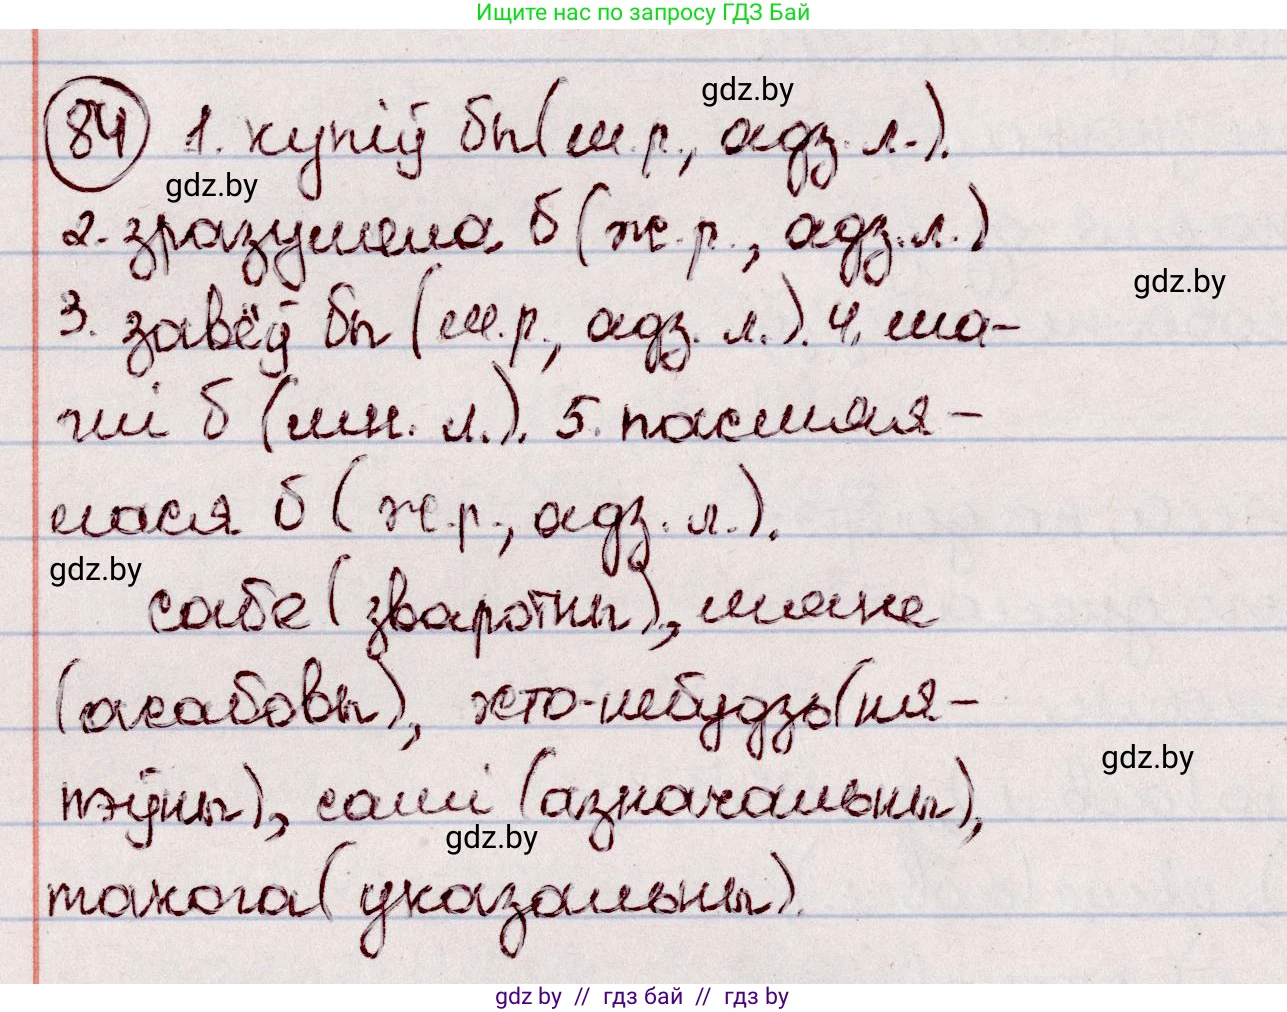 Ищите нас по запросу ГДЗ Бай
84 1. купіў бы (м.р., адз. л.).
gdz.by
gdz.by
2. зразумела б (ж.р., адз.л.)
gdz.by
3. завёў бы (м.р., адз. л.). 4. ма-
глі б (мн. л.). 5. пасмяя-
лася б (ж.р., адз. л.).
gdz.by
сабе (зваротны), мяне
(асабовы), хто-небудзь (ня-
gdz.by
пэўны), самі (азначальны),
gdz.by
такога (указальны).
gdz by // гдз бай // гдз by